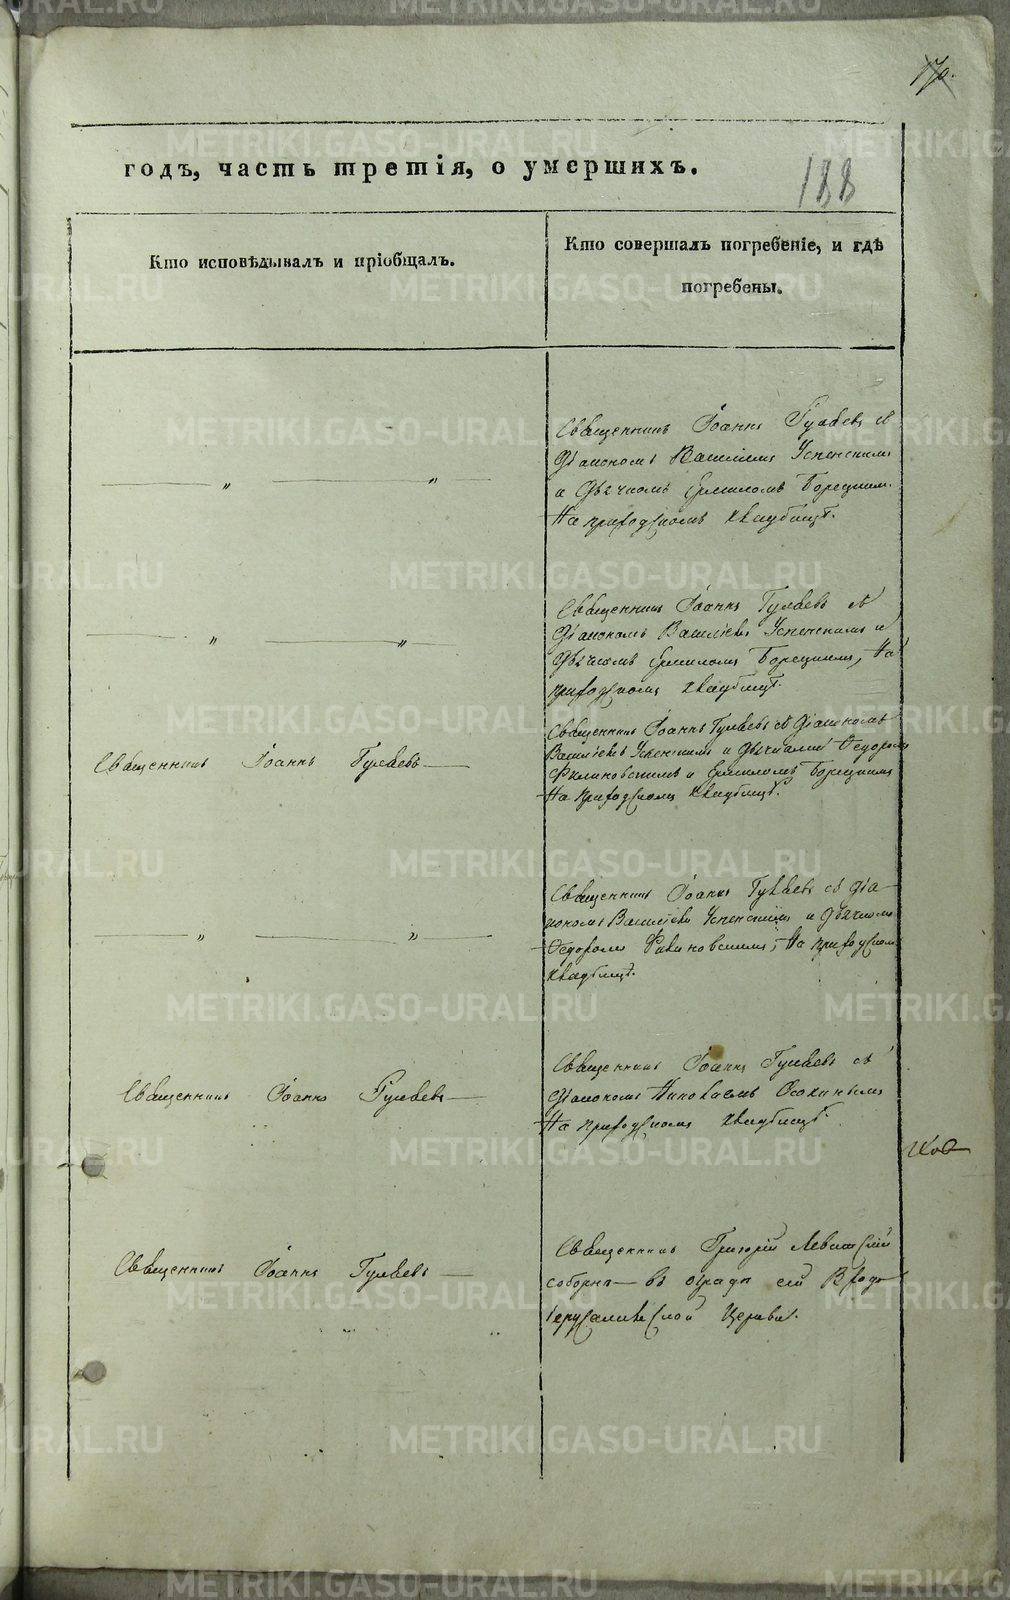 170.
188
годъ, часть третія, о умершихъ.
Кто исповѣдывалъ и пріобщалъ.
Кто совершалъ погребеніе, и гдѣ
погребены.
Священникъ Іоаннъ Гуляевъ съ
Діакономъ Василіемъ Успенскимъ
и Дьячкомъ Ермиломъ Борецкимъ.
На приходскомъ кладбищѣ.
Священникъ Іоаннъ Гуляевъ съ
Діакономъ Василіемъ Успенскимъ и
Дьячкомъ Ермиломъ Борецкимъ, На
приходскомъ кладбищѣ.
Священникъ Іоаннъ Гуляевъ
Священникъ Іоаннъ Гуляевъ съ Діакономъ
Василіемъ Успенскимъ и Дьячками Ѳедоромъ
и Ермиломъ Борецкимъ
На приходскомъ кладбищѣ.
Священникъ Іоаннъ Гуляевъ съ Діа-
кономъ Василіемъ Успенскимъ и Дьячкомъ
Ѳедоромъ На приходскомъ
кладбищѣ.
Священникъ Іоаннъ Гуляевъ
Священникъ Іоаннъ Гуляевъ съ
Діакономъ Николаемъ
На приходскомъ кладбищѣ.
Священникъ Іоаннъ Гуляевъ
Священникъ Григорій Левитскій
соборнѣ въ оградѣ сей Входо
Іерусалимской Церкви.
METRIKI.GASO-URAL.RU